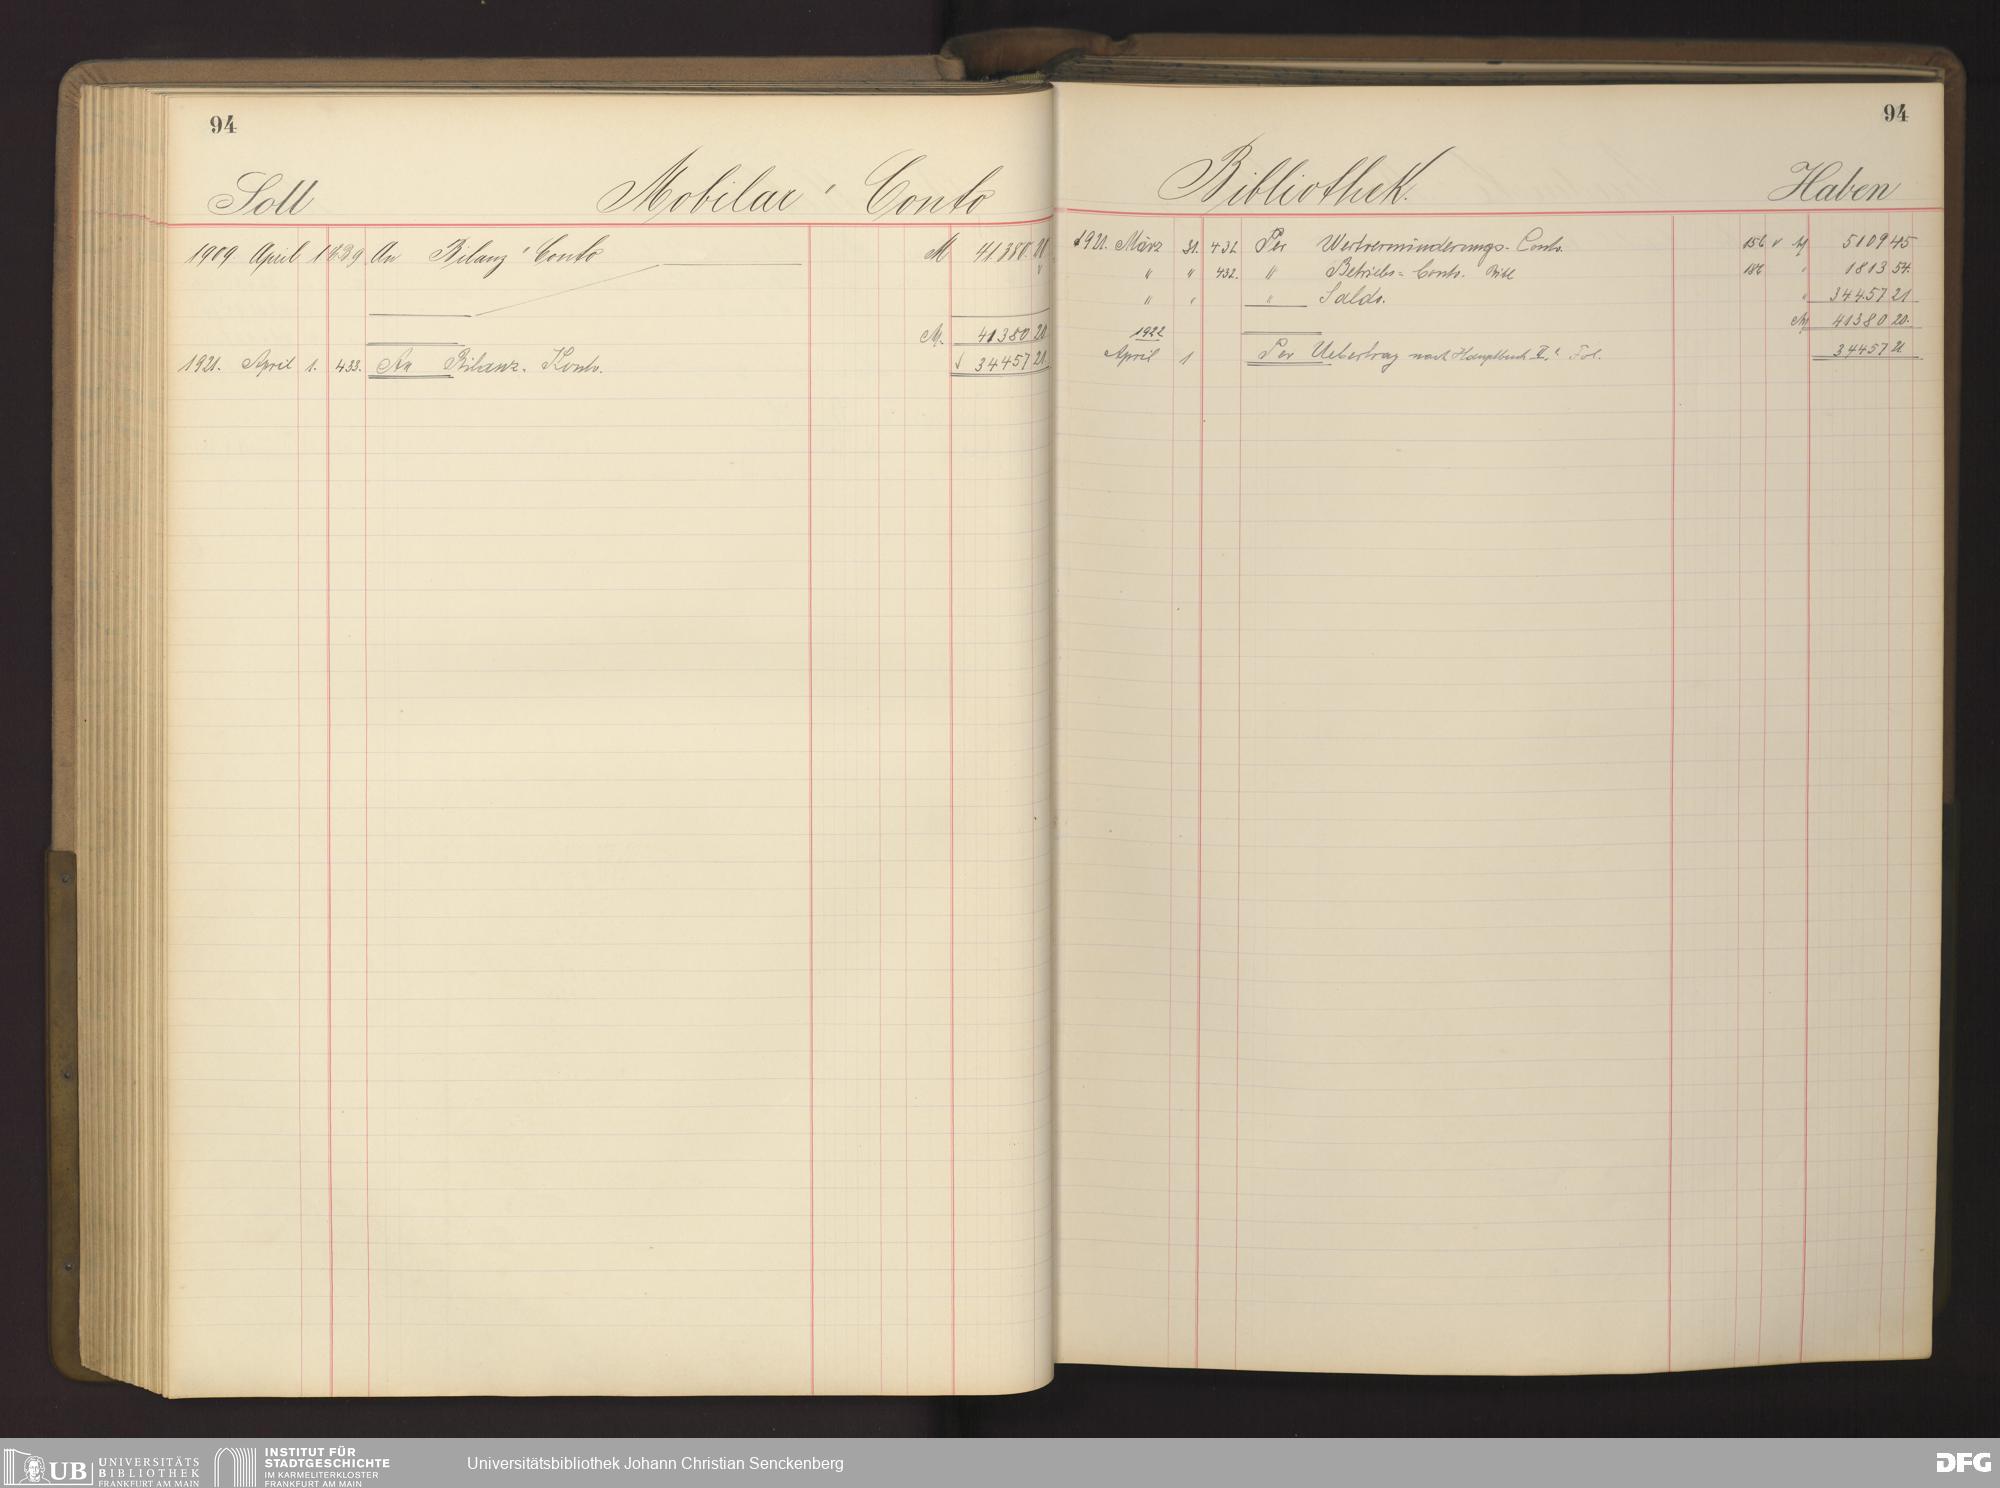 94
Soll Mobilar' Conto
1909 April 1 An Bilanz' Conto M 41380 20
M. 41380 20
1921. April 1. 433. An Bilanz. Konto. 34457 21
94
Bibliothek. Haben
1921. März 31. 432 Per Wertverminderungs-Conto. 156 M 5109 45
" " 432. " Betriebs=Conto. Bibl 186 " 1813 54.
" " " Saldo. " 34457 21
M 41380 20.
1922
April 1 Per Uebertrag nach Hauptbuch II. Fol. 34457 21
UB UNIVERSITÄTS
BIBLIOTHEK
FRANKFURT AM MAIN
INSTITUT FÜR
STADTGESCHICHTE
IM KARMELITERKLOSTER
FRANKFURT AM MAIN
Universitätsbibliothek Johann Christian Senckenberg
DFG